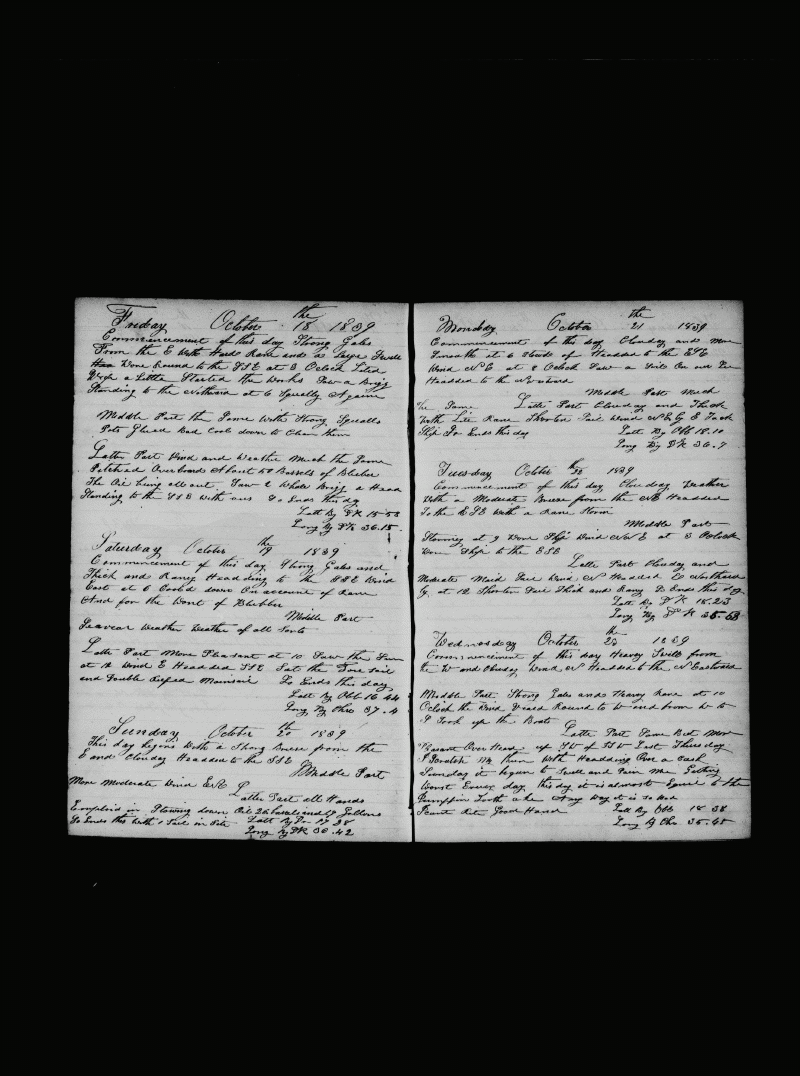 Friday October the 18 1839
Commencement of this day Strong Gales
From the E With Hard Rane and a Large Swell
Wore Round to the SSE at 3 Oclock
With a Little Started the Works Saw a Brig
Standing to the Northward at 6 Squally Again
Middle Part the Same With Strong Squalls
Pots had Cool down to Clean them
Latter Part Wind and Weather Much the Same
Pitched Overboard About 50 Barrels of Blubber
The Oil being all out Saw a Whale Brigg a Head
Standing to the SSE With ours So Ends this day
Latt By DR 15-58
Long By DR 36-15
Saturday October the 19 1839
Commencement of this day Strong Gales and
Thick and Raney Headding to the SSE Wind
East at 6 Cooled down On account of Rane
And for the Want of Blubber
Middle Part
Weather Weather of all Sorts
Latter Part More Pleasant at 10 Saw the Sun
at 12 Wind E Headded SSE Sat the Fore Sail
and Double Reefed Mainsail So Ends this day
Latt By Obb 16-44
Long By Chro 37-4
Sunday October the 20 1839
This day begins With a Strong Breese from the
E and Cloudy Headded to the SSE
Middle Part
More Moderate Wind
Latter Part All Hands
Employed in Stowing down Oil Barels and Gallons
So Ends this With 1 Sail in Site Latt By 17 28
Long By DR 36-42
Monday October the 21 1839
Commencement of this day Cloudy and More
Smooth at 6 Headed to the ESE
Wind NE at 8 Oclock Saw a Sail On our Lee
Headded to the Norward
Middle Part Much
the Same Latter Part Cloudy and Thick
With Lite Rane Shorten Sail Wind Tack
Ship So Ends this day Latt By Obb 18-10
Long By DR 36-7
Tuesday October the 22 1839
Commencement of this day Cloudy Weather
With a Moderate Breese from the NE Headded
To the ESE With a Rane Storm
Middle Part
at 9 Wore Ship Wind at 3 Oclock
Wore Ship to the ESE
Latter Part Cloudy and
Moderate Sail Wind N Headded
at 12 Shorten Sail Thick and Rany So Ends this day
Latt By DR 18-23
Long By DR 35-53
Wednesday October the 23 1839
Commencement of this day Heavy Swell from
the W and Cloudy Wind N Headded to the N Eastward
Middle Part Strong Gales and Heavy Rane at 10
Oclock the Wind Round to
Took up the Boats
Latter Part Same But More
Plesant Over Head Last Thursday
I Scratch My thum With Headding Over a Cask
Sunday it began to Swell and Pain Me Getting
Worst Every day this day it is almost Equel to the
Jumppin Tooth ake Any Way it is so bad
Latt By Obb 18-38
Long By Chro 35-45